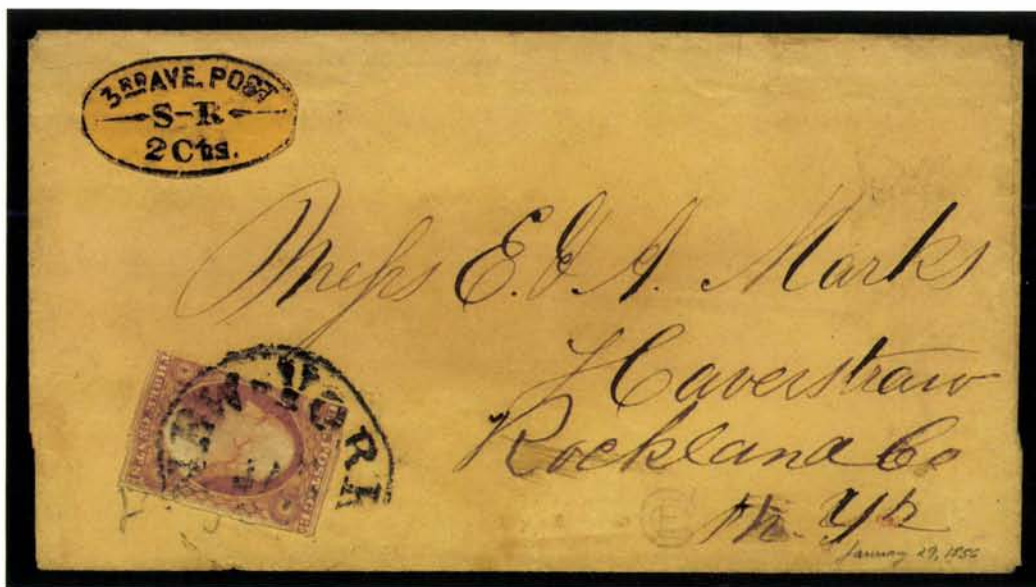 3RD AVE. POST
S-R
2 Cts.
Mess E. & A. Marks
Haverstraw
Rockland Co
N. Yk
NEW-YORK
January 29, 1856